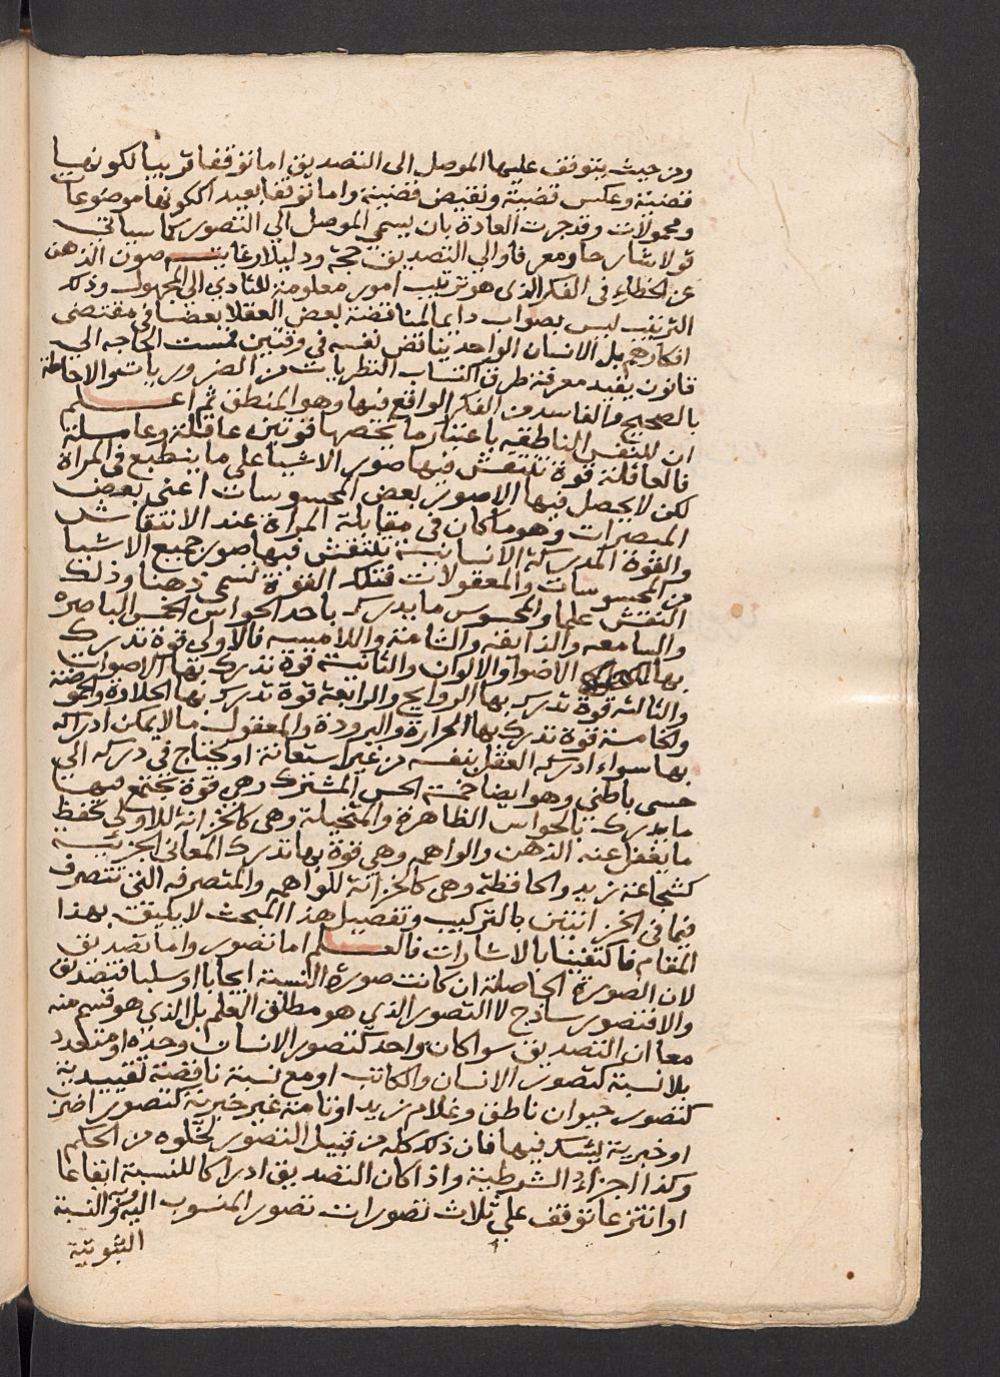 ومن حيث يتوقف عليها الموصل الى التصديق اما توقفا قريبا لكونها
قضية وعكس قضية ونقيض قضية واما توقفا بعيدا ككونها موضوعات
ومحمولات وقد جرت العادة بان يسمى الموصل الى التصور كما سياتي
قولا شارحا ومعرفا والى التصديق حجة ودليلا وغايتـــه صون الذهن
عن الخطاء في الفكر الذى هو ترتيب امور معلومة للتادي الى المجهول وذلك
الترتيب ليس بصواب دايما لمناقضة بعض العقلا بعضا في مقتضى
افكارهم بل الانسان الواحد يناقض نفسه في وقتين فمست الحاجه الى
قانون يفيد معرفة طرق اكتساب النظريات من الضروريات والاحاطة
بالصحيح والفاسد من الفكر الواقع فيها وهو المنطق ثم اعـــلم
ان للنفس الناطقه باعتبار ما يخصها قوتين عاقلة وعاملة
فالعاقلة قوة تنتقش فيها صور الاشيا على ما ينطبع في المراة
لكن لا يحصل فيها الا صور بعض المحسوسات اعنى بعض
المبصرات وهو ما كان في مقابلة المراة عند الانتقاش
والقوة المدركة الانسانية تنتقش فيها صور جميع الاشيا
من المحسوسات والمعقولات فتلك القوة تسمى ذهنا وذلك
النقش علما والمحسوس ما يدرك باحد الحواس الخمس الباصره
والسامعه والذايقه والشامة واللامسه فالاولى قوة تدرك
بها الاضوا والالوان والثانية قوة تدرك بها الاصوات
والثالثه قوة تدرك بها الروايح والرابعة قوة تدرك بها الحلاوة والحموضة
والخامسة قوة تدرك بها الحرارة والبرودة والمعقول ما لا يمكن ادراكه
بها سواء ادركه العقل بنفسه من غير استعانة او يحتاج في دركه الى
حسى باطني وهو ايضا خمسة الحس المشترك وهى قوة يجتمع فيها
ما يدرك بالحواس الظاهرة والمتخيلة وهى كالخزانة للاولى تحفظ
ما يغفل عنه الذهن والواهمه وهي قوة بها تدرك المعانى الجزئية
كشجاعة زيد والحافظة وهى كالخزانة للواهمه والمتصرفه التى تتصرف
فيما فى الخزانتين بالتركيب وتفصيل هذا المبحث لا يليق بهذا
المقام فاكتفينا بالاشارات فالعـــلم اما تصور واما تصديق
لان الصورة الحاصلة ان كانت صورة النسبة ايجابا او سلبا فتصديق
والا فتصور ساذج لا التصور الذي هو مطلق العلم بل الذي هو قسم منه
معا ان التصديق سوا كان واحد كتصور الانسان وحده او متعدد
بلا نسبة كتصور الانسان والكاتب او مع نسبة ناقصة تقييدية
كتصور حيوان ناطق وغلام زيد او تامة غير خبرية كتصور اضرب
او خبرية يشك فيها فان ذلك كله من قبيل التصور لخلوه من الحكم
وكذا اجزاء الشرطية واذا كان التصديق ادراكا للنسبة ايقاعا
او انتزعا توقف على ثلاث تصورات تصور المنسوب اليه وبه والنسبة
الثبوتية